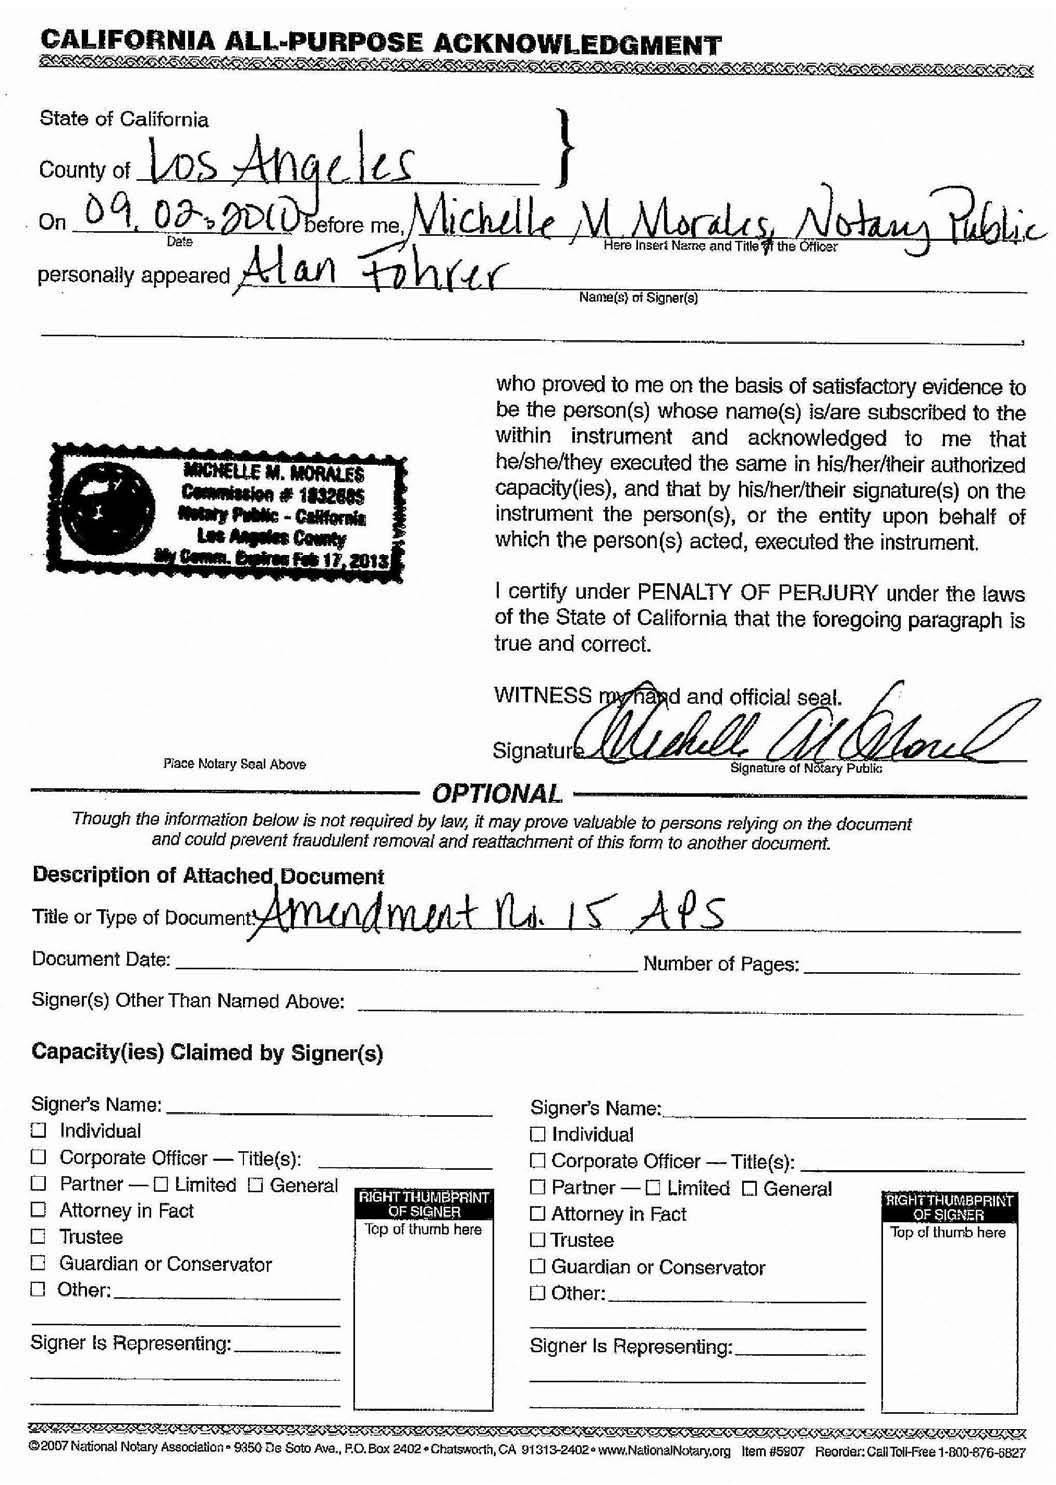 CALIFORNIA ALL-PURPOSE ACKNOWLEDGMENT
State of California
County of Los Angeles
On 09.02.2010 before me, Michelle M Morales, Notary Public
Date
Here Insert Name and Title of the Officer
personally appeared Alan Fohrer
Name(s) of Signer(s)
who proved to me on the basis of satisfactory evidence to
be the person(s) whose name(s) is/are subscribed to the
within instrument and acknowledged to me that
he/she/they executed the same in his/her/their authorized
capacity(ies), and that by his/her/their signature(s) on the
instrument the person(s), or the entity upon behalf of
which the person(s) acted, executed the instrument.
MICHELLE M. MORALES
Commission # 1832685
Notary Public - California
Los Angeles County
My Comm. Expires Feb 17, 2013
I certify under PENALTY OF PERJURY under the laws
of the State of California that the foregoing paragraph is
true and correct.
WITNESS my hand and official seal.
Signature Michelle M Morales
Signature of Notary Public
Place Notary Seal Above
OPTIONAL
Though the information below is not required by law, it may prove valuable to persons relying on the document
and could prevent fraudulent removal and reattachment of this form to another document.
Description of Attached Document
Title or Type of Document: Amendment No. 15 APS
Document Date: Number of Pages:
Signer(s) Other Than Named Above:
Capacity(ies) Claimed by Signer(s)
Signer's Name:
☐ Individual
☐ Corporate Officer — Title(s):
☐ Partner — ☐ Limited ☐ General
☐ Attorney in Fact
☐ Trustee
☐ Guardian or Conservator
☐ Other:
Signer Is Representing:
RIGHT THUMBPRINT
OF SIGNER
Top of thumb here
Signer's Name:
☐ Individual
☐ Corporate Officer — Title(s):
☐ Partner — ☐ Limited ☐ General
☐ Attorney in Fact
☐ Trustee
☐ Guardian or Conservator
☐ Other:
Signer Is Representing:
RIGHT THUMBPRINT
OF SIGNER
Top of thumb here
©2007 National Notary Association • 9350 De Soto Ave., P.O. Box 2402 • Chatsworth, CA 91313-2402 • www.NationalNotary.org Item #5907 Reorder: Call Toll-Free 1-800-876-6827